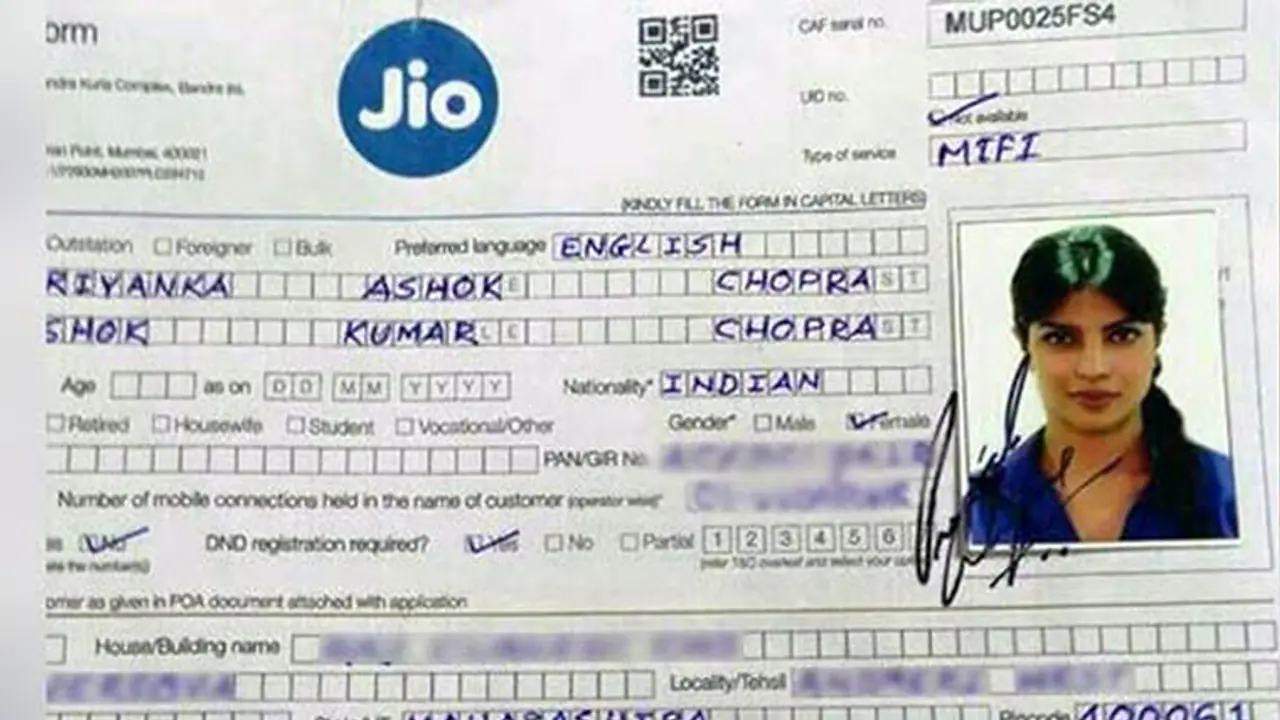 orm
Jio
CAF serial no. MUP0025FS4
UID no.
Not available
Type of service MIFI
(KINDLY FILL THE FORM IN CAPITAL LETTERS)
Outstation Foreigner Bulk Preferred language ENGLISH
RIYANKA ASHOK E CHOPRA S T
SHOK KUMAR L E CHOPRA S T
Age as on D D M M Y Y Y Y Nationality* INDIAN
Retired Housewife Student Vocational/Other Gender* Male Female
PAN/GIR No.
Number of mobile connections held in the name of customer (operator wise)*
No DND registration required? Yes No Partial 1 2 3 4 5 6
omer as given in POA document attached with application
House/Building name
Locality/Tehsil
MAHARASHTRA Pincode 400061